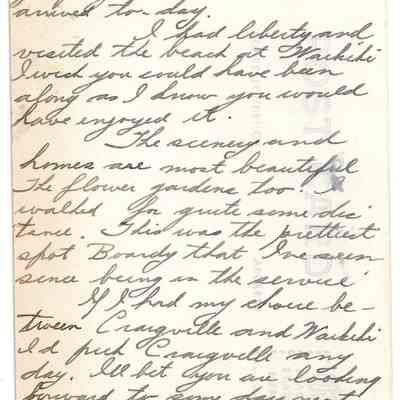 arrived to-day.
I had liberty and
visited the beach at Waikiki
I wish you could have been
along as I know you would
have enjoyed it.
The scenery and
homes are most beautiful
The flower gardens too. I
walked for quite some dis-
tance. This was the prettiest
spot Boardy that I've seen
since being in the service
If I had my choice be-
tween Craigville and Waikiki
I'd pick Craigville any
day. I'll bet you are looking
forward to some day next